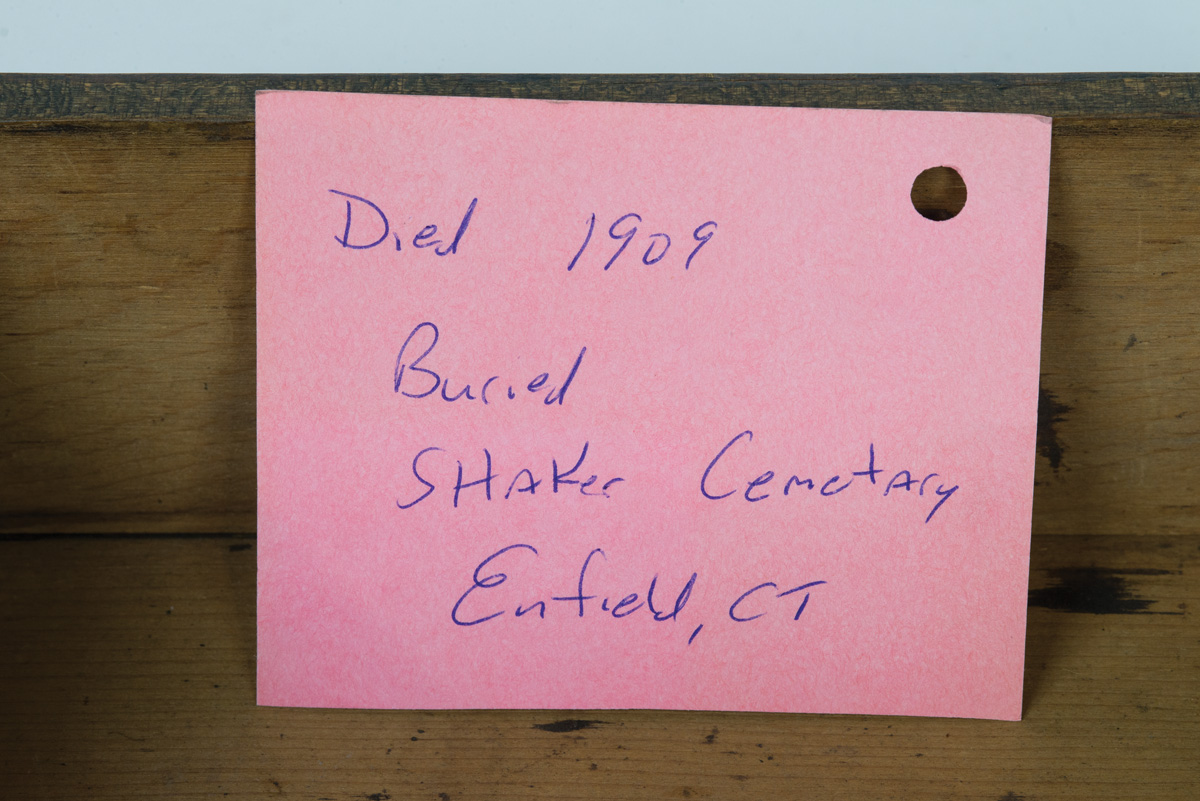 Died 1909
Buried
SHAKer Cemetary
Enfield, CT